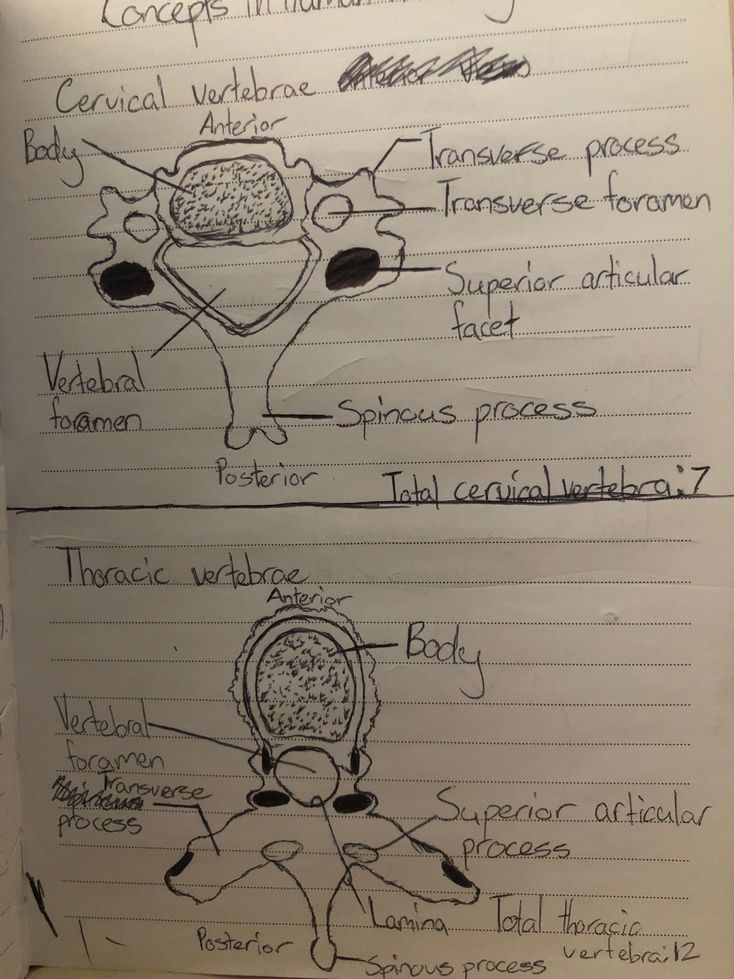 Concepts in human
Cervical vertebrae
Anterior
Body
Transverse process
Transverse foramen
Superior articular
facet
Vertebral
foramen
Spinous process
Posterior
Total cervical vertebra:7
Thoracic vertebrae
Anterior
Body
Vertebral
foramen
Transverse
process
Superior articular
process
Lamina
Total thoracic
vertebra:12
Posterior
Spinous process